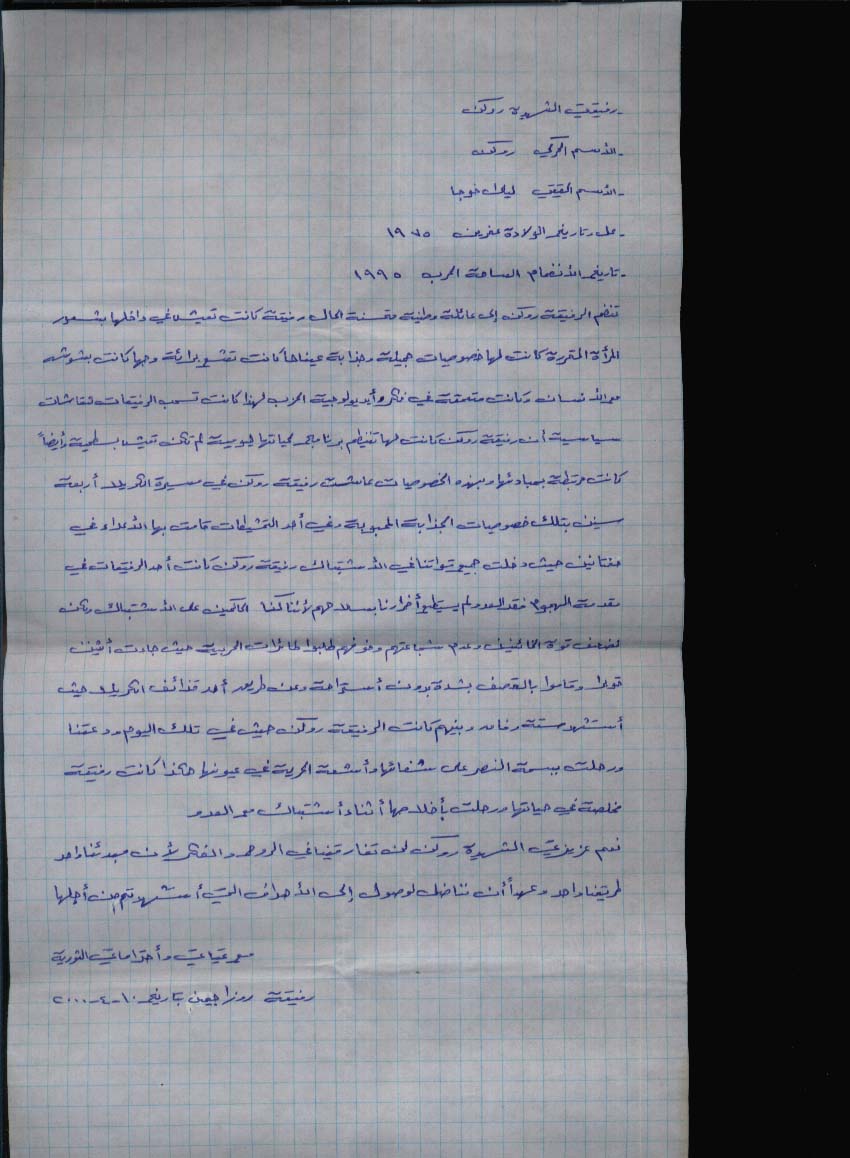 - رفيقتي الشهيدة روكن
- الأسم الحركي روكن
- الأسم الحقيقي ليلى خوجا
- محل وتاريخ الولادة عفرين ١٩٧٥
- تاريخ الأنضمام الساحة الحرب ١٩٩٥
تنضم الرفيقة روكن إلى عائلة وطنية حسنة الحال رفيقة كانت تعيش في داخلها بشعور
المرأة المتحررة كانت لها خصوصيات جميلة وجذابة عيناها كانت تشع بدائة وجها كانت بشوشه
مع الأنسان وكانت متعمقة في فكر وأيديولوجية الحزب لهذا كانت تسحب الرفيقات لنقاشات
سياسية أن رفيقة روكن كانت لها تنظيم برنامج لحياتها اليومية لم تكن تعيش بسطحية وأيضاً
كانت مرتبطة بمبادئها وبهذه الخصوصيات عاشت رفيقة روكن في مسيرة الكريلا أربعة
سنين بتلك خصوصيات الجذابة المحبوبة وفي أحد التمشيطات قامت بها الأعداء في
حفتانين حيث دخلت جميع قواتنا في الأشتباك رفيقة روكن كانت أحد الرفيقات في
مقدمة الهجوم فقد العدو لم يستطيع أضرارنا بسلاحهم لأننا كنا الحاكمين على الأشتباك ولكن
لضعف قوة الخائنين وعدم شجاعتهم وخوفهم طلبوا طائرات الحربية حيث جاءت أثنين
قولا وقاموا بالقصف بشدة بدون أستراحة وعن طريق أحد قذائف الكريلا حيث
أستشهد ستة رفاق وبينهم كانت الرفيقة روكن حيث في تلك اليوم ودعتنا
ورحلت ببسمة النصر على شفائها وأشعة الحرية في عيونها هاكذا كانت رفيقة
مخلصة في حياتها ورحلت بأخلاصها أثناء أشتباك مع العدو
نعم عزيزتي الشهيدة روكن لن تفارقينا في الروح والفكر لأن مبدئنا واحد
طريقنا واحد وعهداً أن نناضل لوصول إلى الأهداف التي أستشهدتم من أجلها
مع تحياتي وأحتراماتي الثورية
رفيقة روزا جيهن بتاريخ ١٠-٤-٢٠٠٠